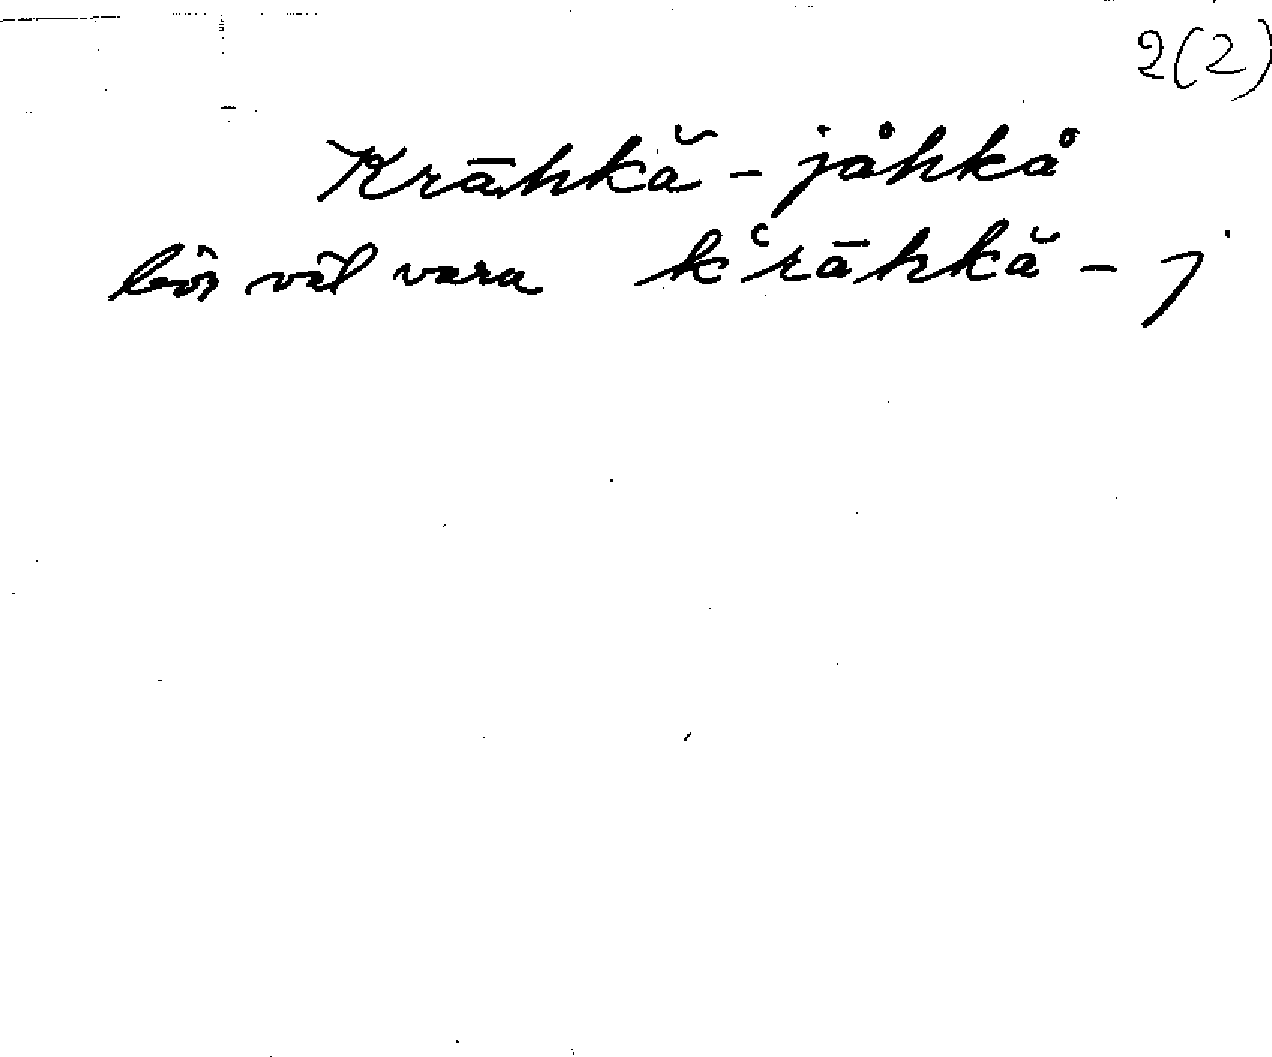 2(2)
Krāhkă - jåhkå
bör väl vara kʿrāhkă - j